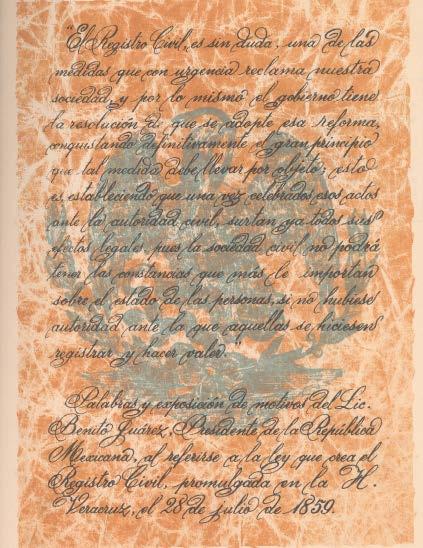 "El Registro Civil, es sin duda, una de las
medidas que con urgencia reclama nuestra
sociedad, y por lo mismo el gobierno tiene
la resolución di que se adopte esa reforma,
conquistando definitivamente el gran principio
que tal medida debe llevar por objeto; esto
es, estableciendo que una vez celebrados esos actos
ante la autoridad civil, surtan ya todos sus
efectos legales, pues la sociedad civil no podrá
tener las constancias que más le importan
sobre el estado de las personas, si no hubiese
autoridad ante la que aquellas se hiciesen
registrar y hacer valer."
Palabras y exposición de motivos del Lic.
Benito Juárez, Presidente de la República
Mexicana, al referirse a la ley que crea el
Registro Civil, promulgada en la H.
Veracruz, el 28 de julio de 1859.